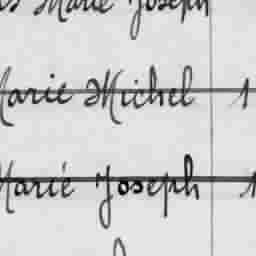 Marie Joseph
Marie Michel 1
Marie Joseph 1